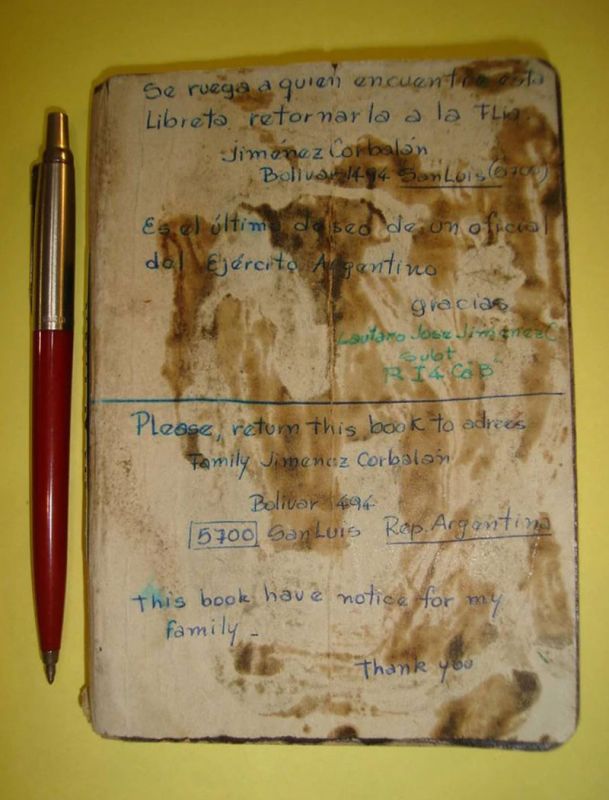 Se ruega a quien encuentre esta
Libreta retornarla a la FLia.
Jiménez Corbalán
Bolivar 1494 San Luis (5700)
Es el último deseo de un oficial
del Ejército Argentino
gracias
Lautaro Jose Jimenez C
Subt
R I 4 Ca B
Please, return this book to adrees
Family Jimenez Corbalán
Bolivar 1494
5700 San Luis Rep. Argentina
this book have notice for my
family -
Thank you